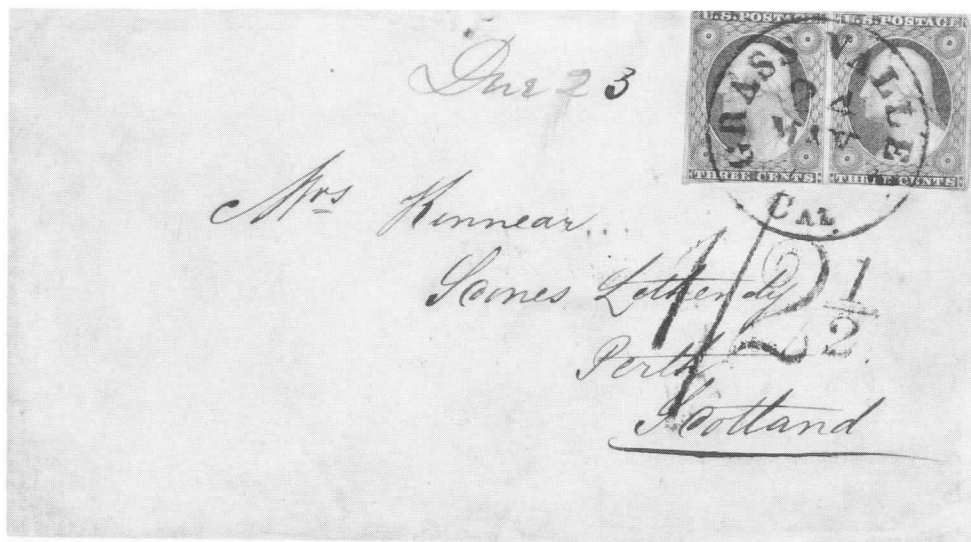 U.S. POSTAGE U.S. POSTAGE
THREE CENTS THREE CENTS
GRASS VALLE
CAL.
Due 23
Mrs Kinnear..
Scones Lethendy
Perth
Scotland
1/2½